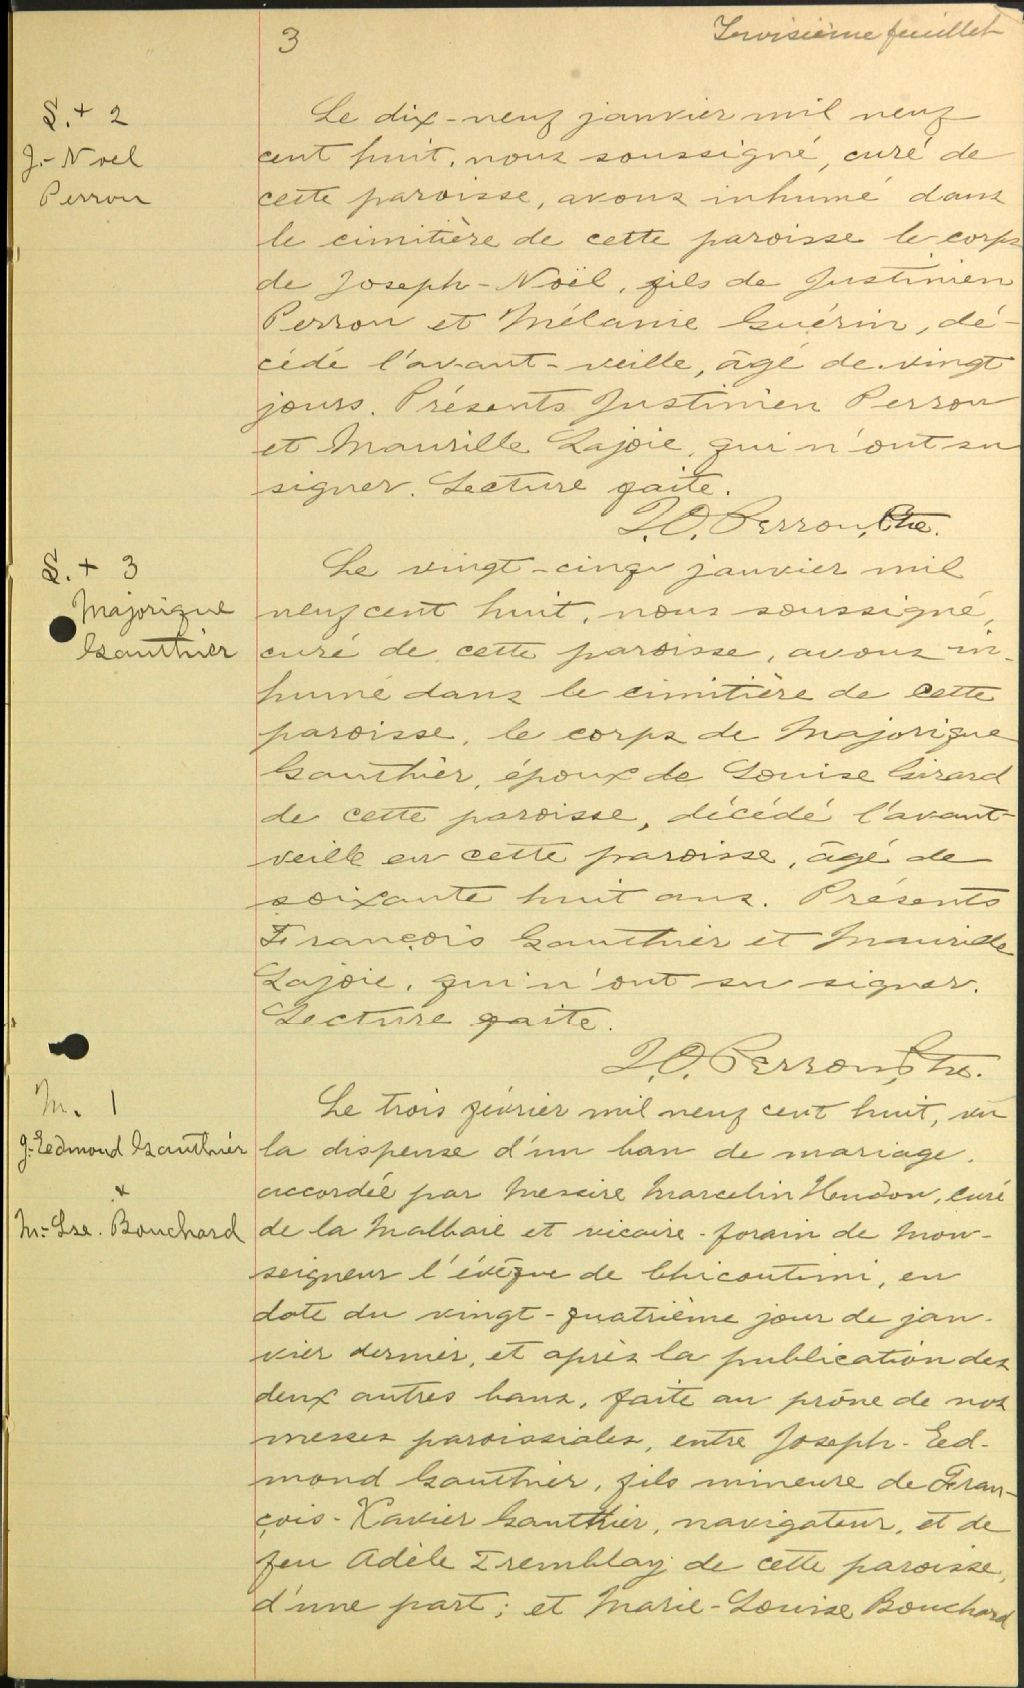 3
Troisième feuillet
S. + 2
J.-Noel
Perron
Le dix-neuf janvier mil neuf
cent huit, nous soussigné, curé de
cette paroisse, avons inhumé dans
le cimitière de cette paroisse le corps
de Joseph-Noël, fils de Justinien
Perron et Mélanie Guérin, dé-
cédé l'avant-veille, âgé de vingt
jours. Présents Justinien Perron
et Maurille Lajoie, qui n'ont su
signer. Lecture faite.
J.O. Perron, Ptre.
S. + 3
Majorique
Gauthier
Le vingt-cinq janvier mil
neuf cent huit, nous soussigné,
curé de cette paroisse, avons in-
humé dans le cimitière de cette
paroisse, le corps de Majorique
Gauthier, époux de Louise Girard
de cette paroisse, décédé l'avant-
veille en cette paroisse, âgé de
soixante huit ans. Présents
François Gauthier et Maurille
Lajoie, qui n'ont su signer.
Lecture faite.
J.O. Perron, Ptre.
M. 1
J.-Edmond Gauthier
x
M.-Lse. Bouchard
Le trois février mil neuf cent huit, vu
la dispense d'un ban de mariage,
accordée par Messire Marcelin Hudon, curé
de la Malbaie et vicaire-forain de Mon-
seigneur l'évêque de Chicoutimi, en
date du vingt-quatrième jour de jan-
vier dernier, et après la publication des
deux autres bans, faite au prône de nos
messes paroissiales, entre Joseph-Ed-
mond Gauthier, fils mineure de Fran-
çois-Xavier Gauthier, navigateur, et de
feu Adèle Tremblay de cette paroisse,
d'une part; et Marie-Louise Bouchard